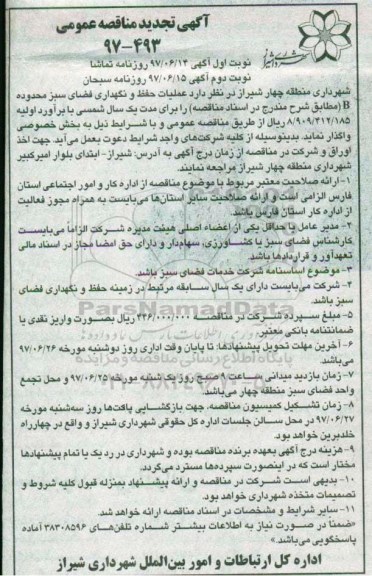 آگهی تجدید مناقصه عمومی
۹۷-۴۹۳
نوبت اول آگهی ۹۷/۰۶/۱۴ روزنامه تماشا
نوبت دوم آگهی ۹۷/۰۶/۱۵ روزنامه سبحان
شهرداری منطقه چهار شیراز در نظر دارد عملیات حفظ و نگهداری فضای سبز محدوده
B (مطابق شرح مندرج در اسناد مناقصه) را برای مدت یک سال شمسی با برآورد اولیه
۸/۹۰۹/۳۱۲/۱۸۵ ریال از طریق مناقصه عمومی و با شرایط ذیل به بخش خصوصی
واگذار نماید. بدینوسیله از کلیه شرکت‌های واجد شرایط دعوت بعمل می‌آید جهت اخذ
اوراق و شرکت در مناقصه از زمان درج آگهی به آدرس: شیراز- ابتدای بلوار امیرکبیر
شهرداری منطقه چهار شیراز مراجعه نمایند.
۱- ارائه صلاحیت معتبر مربوط با موضوع مناقصه از اداره کار و امور اجتماعی استان
فارس الزامی است و ارائه صلاحیت سایر استان‌ها می‌بایست به همراه مجوز فعالیت
از اداره کار استان فارس باشد.
۲- مدیر عامل یا حداقل یکی از اعضاء اصلی هیئت مدیره شرکت الزاماً می‌بایست
کارشناس فضای سبز یا کشاورزی، سهام‌دار و دارای حق امضا مجاز در اسناد مالی
تعهدآور و قراردادها باشد.
۳- موضوع اساسنامه شرکت خدمات فضای سبز باشد.
۴- شرکت می‌بایست دارای یک سال سابقه مرتبط در زمینه حفظ و نگهداری فضای
سبز باشد.
۵- مبلغ سپرده شرکت در مناقصه ۴۴۶/۰۰۰/۰۰۰ ریال بصورت واریز نقدی یا
ضمانتنامه بانکی معتبر.
۶- آخرین مهلت تحویل پیشنهادها: تا پایان وقت اداری روز دوشنبه مورخه ۹۷/۰۶/۲۶
می‌باشد.
۷- زمان بازدید میدانی ساعت ۹ صبح روز یک شنبه مورخه ۹۷/۰۶/۲۵ و محل تجمع
واحد فضای سبز منطقه چهار می‌باشد.
۸- زمان تشکیل کمیسیون مناقصه، جهت بازگشایی پاکت‌ها روز سه‌شنبه مورخه
۹۷/۰۶/۲۷ در محل سالن جلسات اداره کل حقوقی شهرداری شیراز و واقع در چهارراه
خلدبرین خواهد بود.
۹- هزینه درج آگهی بعهده برنده مناقصه بوده و شهرداری در رد یک یا تمام پیشنهادها
مختار است که در اینصورت سپرده‌ها مسترد می‌گردد.
۱۰- بدیهی است شرکت در مناقصه و ارائه پیشنهاد بمنزله قبول کلیه شروط و
تصمیمات متخذه شهرداری خواهد بود.
۱۱- سایر شرایط و مشخصات در اسناد مناقصه ارائه خواهد شد.
«ضمناً در صورت نیاز به اطلاعات بیشتر شماره تلفن‌های ۳۸۳۰۸۵۹۶ آماده
پاسخگویی می‌باشد.»
اداره کل ارتباطات و امور بین‌الملل شهرداری شیراز